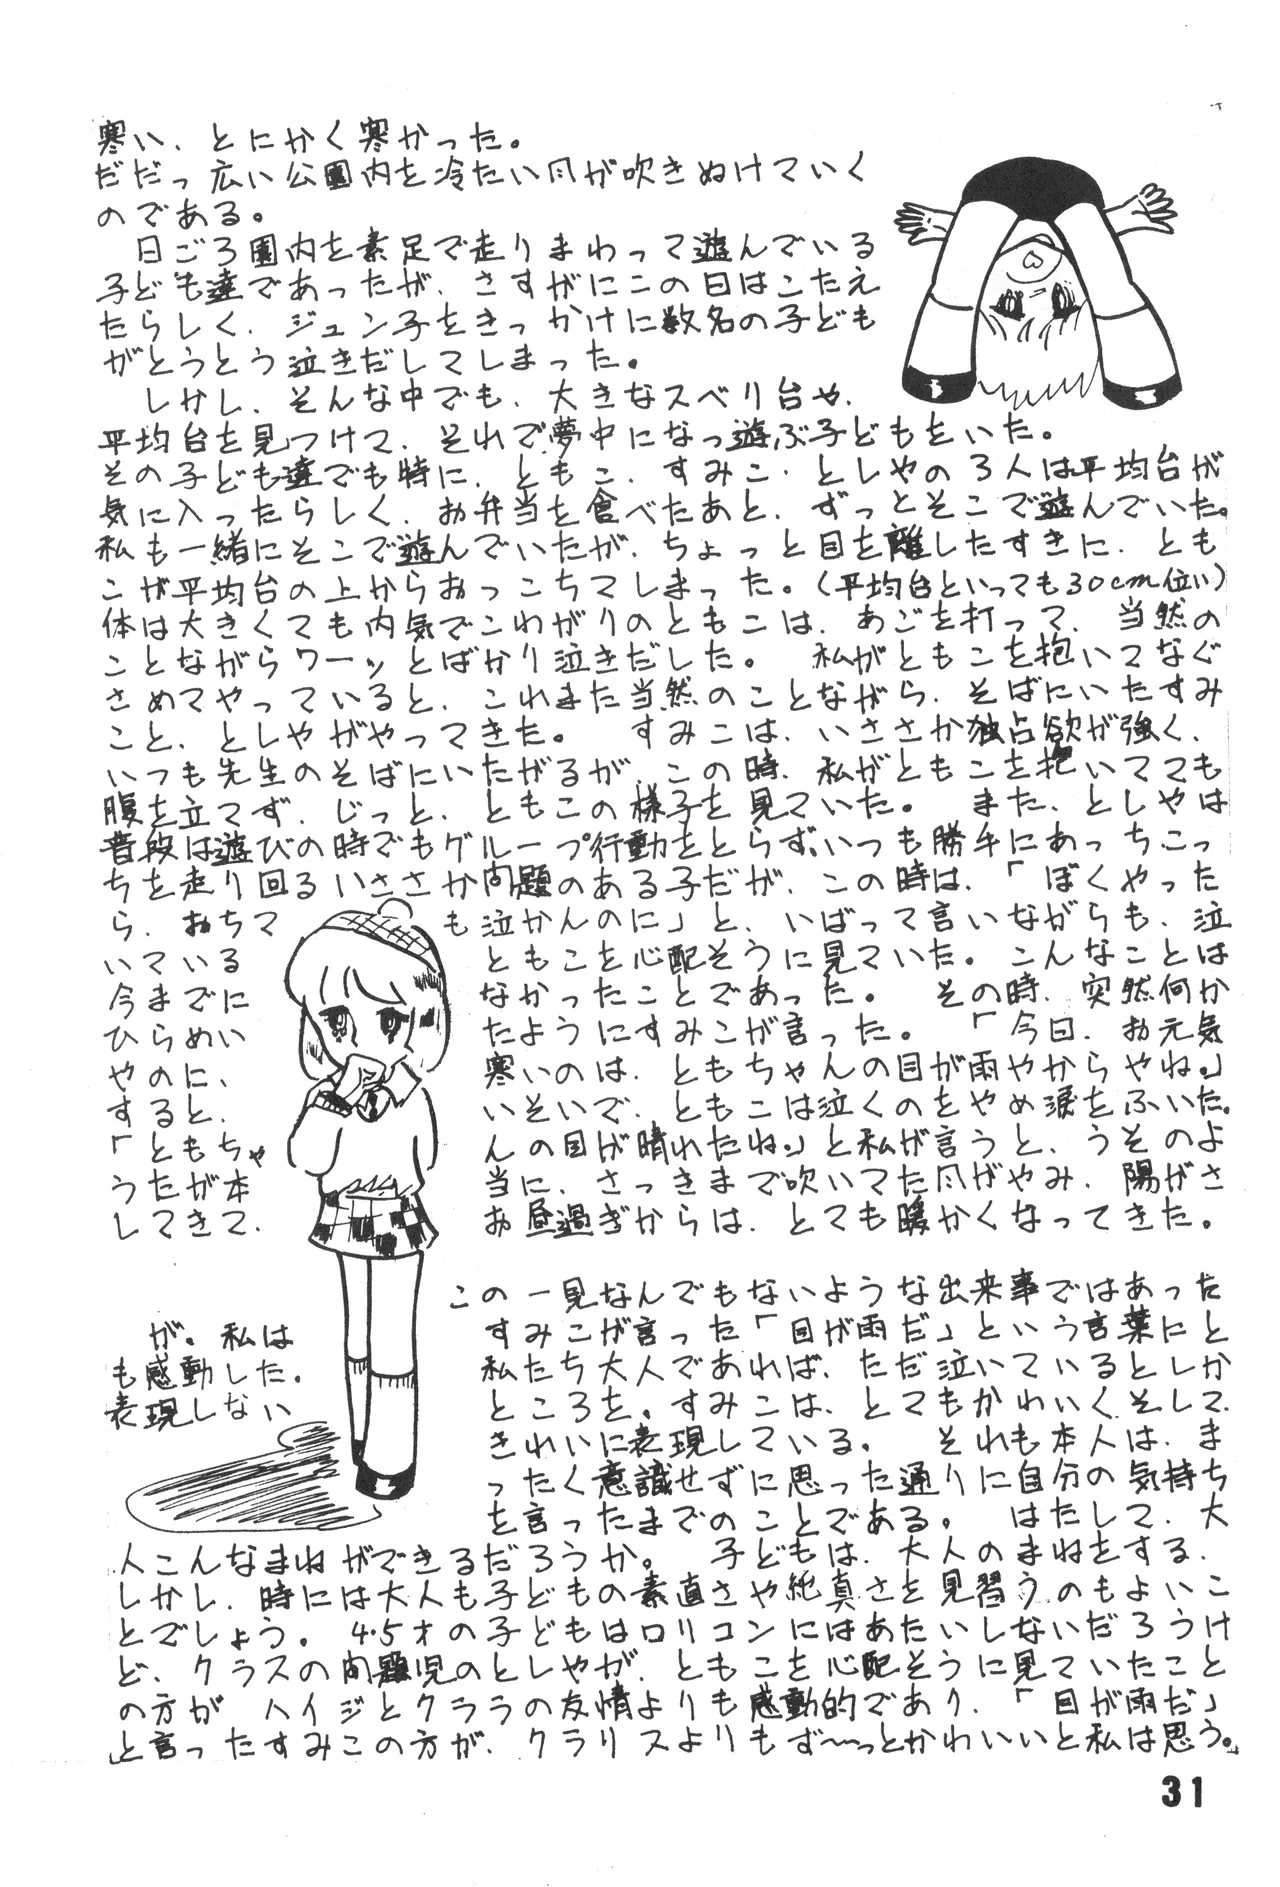 寒い、とにかく寒かった。
だだっ広い公園内を冷たい風が吹きぬけていく
のである。
日ごろ園内を素足で走りまわって遊んでいる
子ども達であったが、さすがにこの日はこたえ
たらしく、ジュン子をきっかけに数名の子ども
がとうとう泣きだしてしまった。
しかし、そんな中でも、大きなスベリ台や、
平均台を見つけて、それで夢中になっ遊ぶ子どももいた。
その子ども達でも時に、ともこ、すみこ、としやの3人は平均台が
気に入ったらしく、お弁当を食べたあと、ずっとそこで遊んでいた。
私も一緒にそこで遊んでいたが、ちょっと目を離したすきに、とも
こが平均台の上からおっこちてしまった。(平均台といっても30cm位い)
体は大きくても内気でこわがりのともこは、あごを打って、当然の
ことながらワーッとばかり泣きだした。 私がともこを抱いてなぐ
さめてやっていると、これまた当然のことながら、そばにいたすみ
こと、としやがやってきた。 すみこは、いささか独占欲が強く、
いつも先生のそばにいたがるが、この時、私がともこを抱いてても
腹を立てず、じっと、ともこの様子を見ていた。 また、としやは
普段は遊びの時でもグループ行動をとらず、いつも勝手にあっちこっ
ちを走り回るいささか問題のある子だが、この時は、「ぼくやった
ら、おちて も泣かんのに」と、いばって言いながらも、泣
いている ともこを心配そうに見ていた。こんなことは
今までに なかったことであった。 その時、突然何か
ひらめい たようにすみこが言った。 「今日、お元気
やのに、 寒いのは、ともちゃんの目が雨やからやね。」
すると、 いそいで、ともこは泣くのをやめ涙をふいた。
「ともちゃ んの目が晴れたね。」と私が言うと、うそのよ
うたが本 当に、さっきまで吹いてた風がやみ、陽がさ
してきて、 お昼過ぎからは、とても暖かくなってきた。
この一見なんでもないような出来事ではあった
が。私は すみこが言った「目が雨だ」という言葉にと
も感動した。 私たち大人であれば、ただ泣いているとしか
表現しない ところを。すみこは、とてもかわいくそして、
きれいに表現している。 それも本人は、ま
ったく意識せずに思った通りに自分の気持ち
を言ったまでのことである。 はたして、大
人こんなまねができるだろうか。 子どもは、大人のまねをする、
しかし、時には大人も子どもの素直さや純真さを見習うのもよいこ
とでしょう。 4・5才の子どもはロリコンにはあたいしないだろうけ
ど、クラスの問題児のとしやが、ともこを心配そうに見ていたこと
の方が ハイジとクララの友情よりも感動的であり、「目が雨だ」
と言ったすみこの方が、クラリスよりもず〜っとかわいいと私は思う。
31